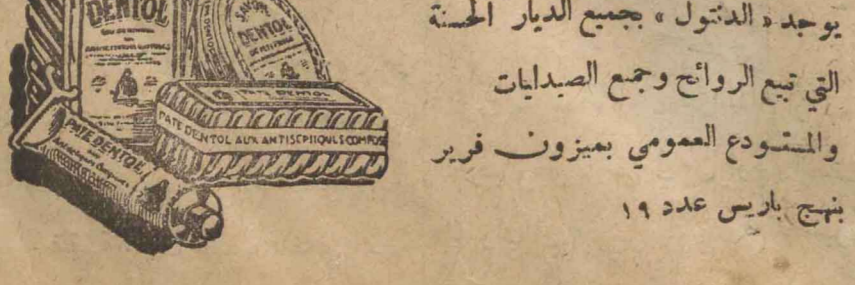 DENTOL
SAVON
DENTOL
PATE DENTOL AUX ANTISEPTIQUES COMPOS
PATE DENTOL
يوجد « الدنتول » بجميع الديار الحسنة
التي تبيع الروائح وجميع الصيدليات
والمستودع العمومي بميزون فرير
بنهج باريس عدد ١٩